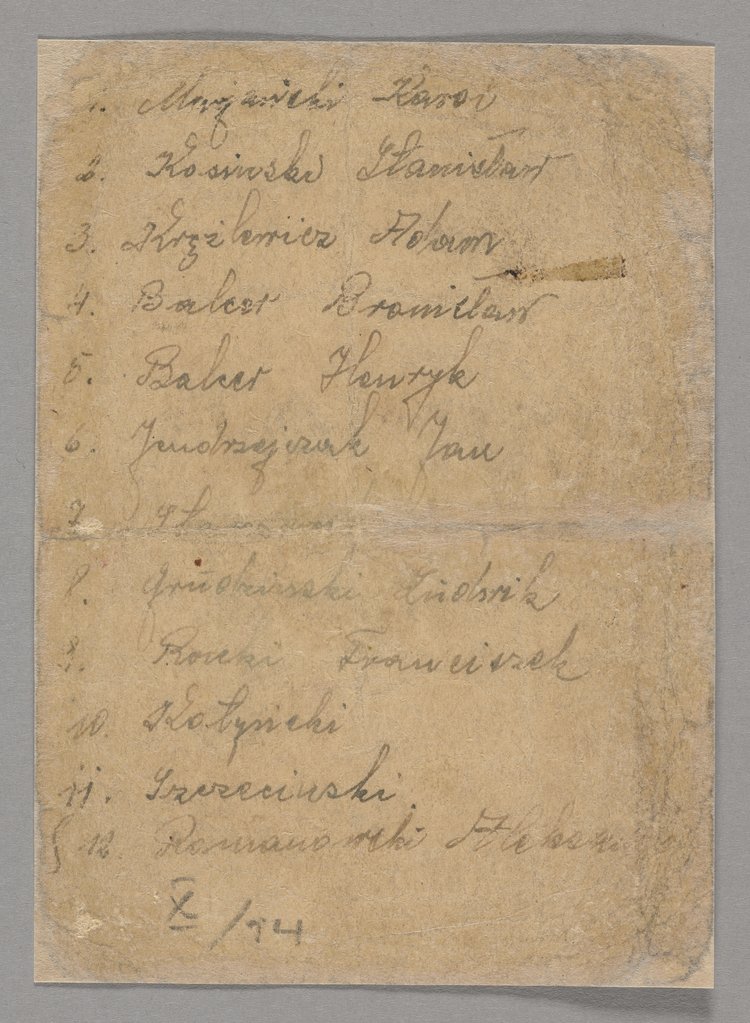 1. Karol
2. Kosinski Stanisław
3. Krężlewicz Adam
4. Balcer Bronisław
5. Balcer Henryk
6. Jendrzejczak Jan
7.
8. Grudzinski Ludwik
9. Rocki Franciszek
10. Kotyński
11. Szczecinski
12. Romanowski
X/14